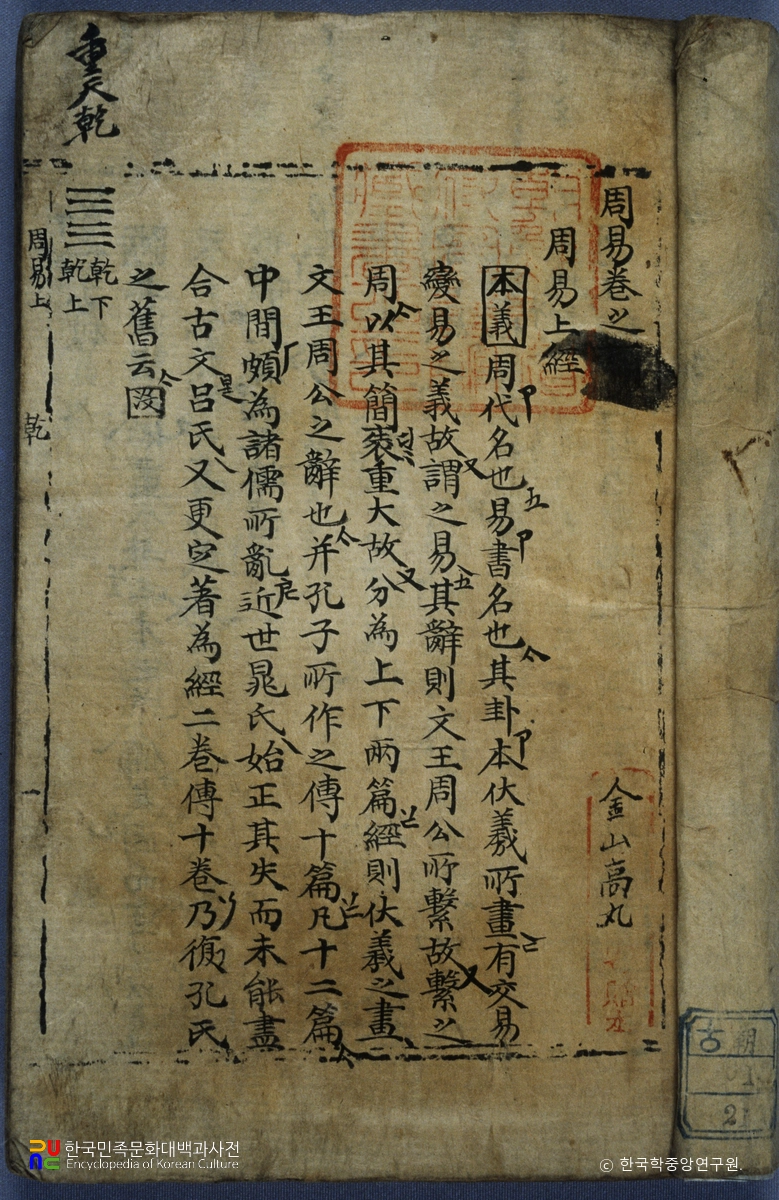 周易卷之
金山高丸
周易上經
本義周代名也易書名也其卦本伏羲所畫有交易
變易之義故謂之易其辭則文王周公所繫故繫之
周以其簡袠重大故分為上下兩篇經則伏羲之畫
文王周公之辭也并孔子所作之傳十篇凡十二篇
中間頗為諸儒所亂近世晁氏始正其失而未能盡
合古文呂氏又更定著為經二卷傳十卷乃復孔氏
之舊云
重天乾
乾下
乾上
周易上
乾
古朝
한국민족문화대백과사전
Encyclopedia of Korean Culture
© 한국학중앙연구원.